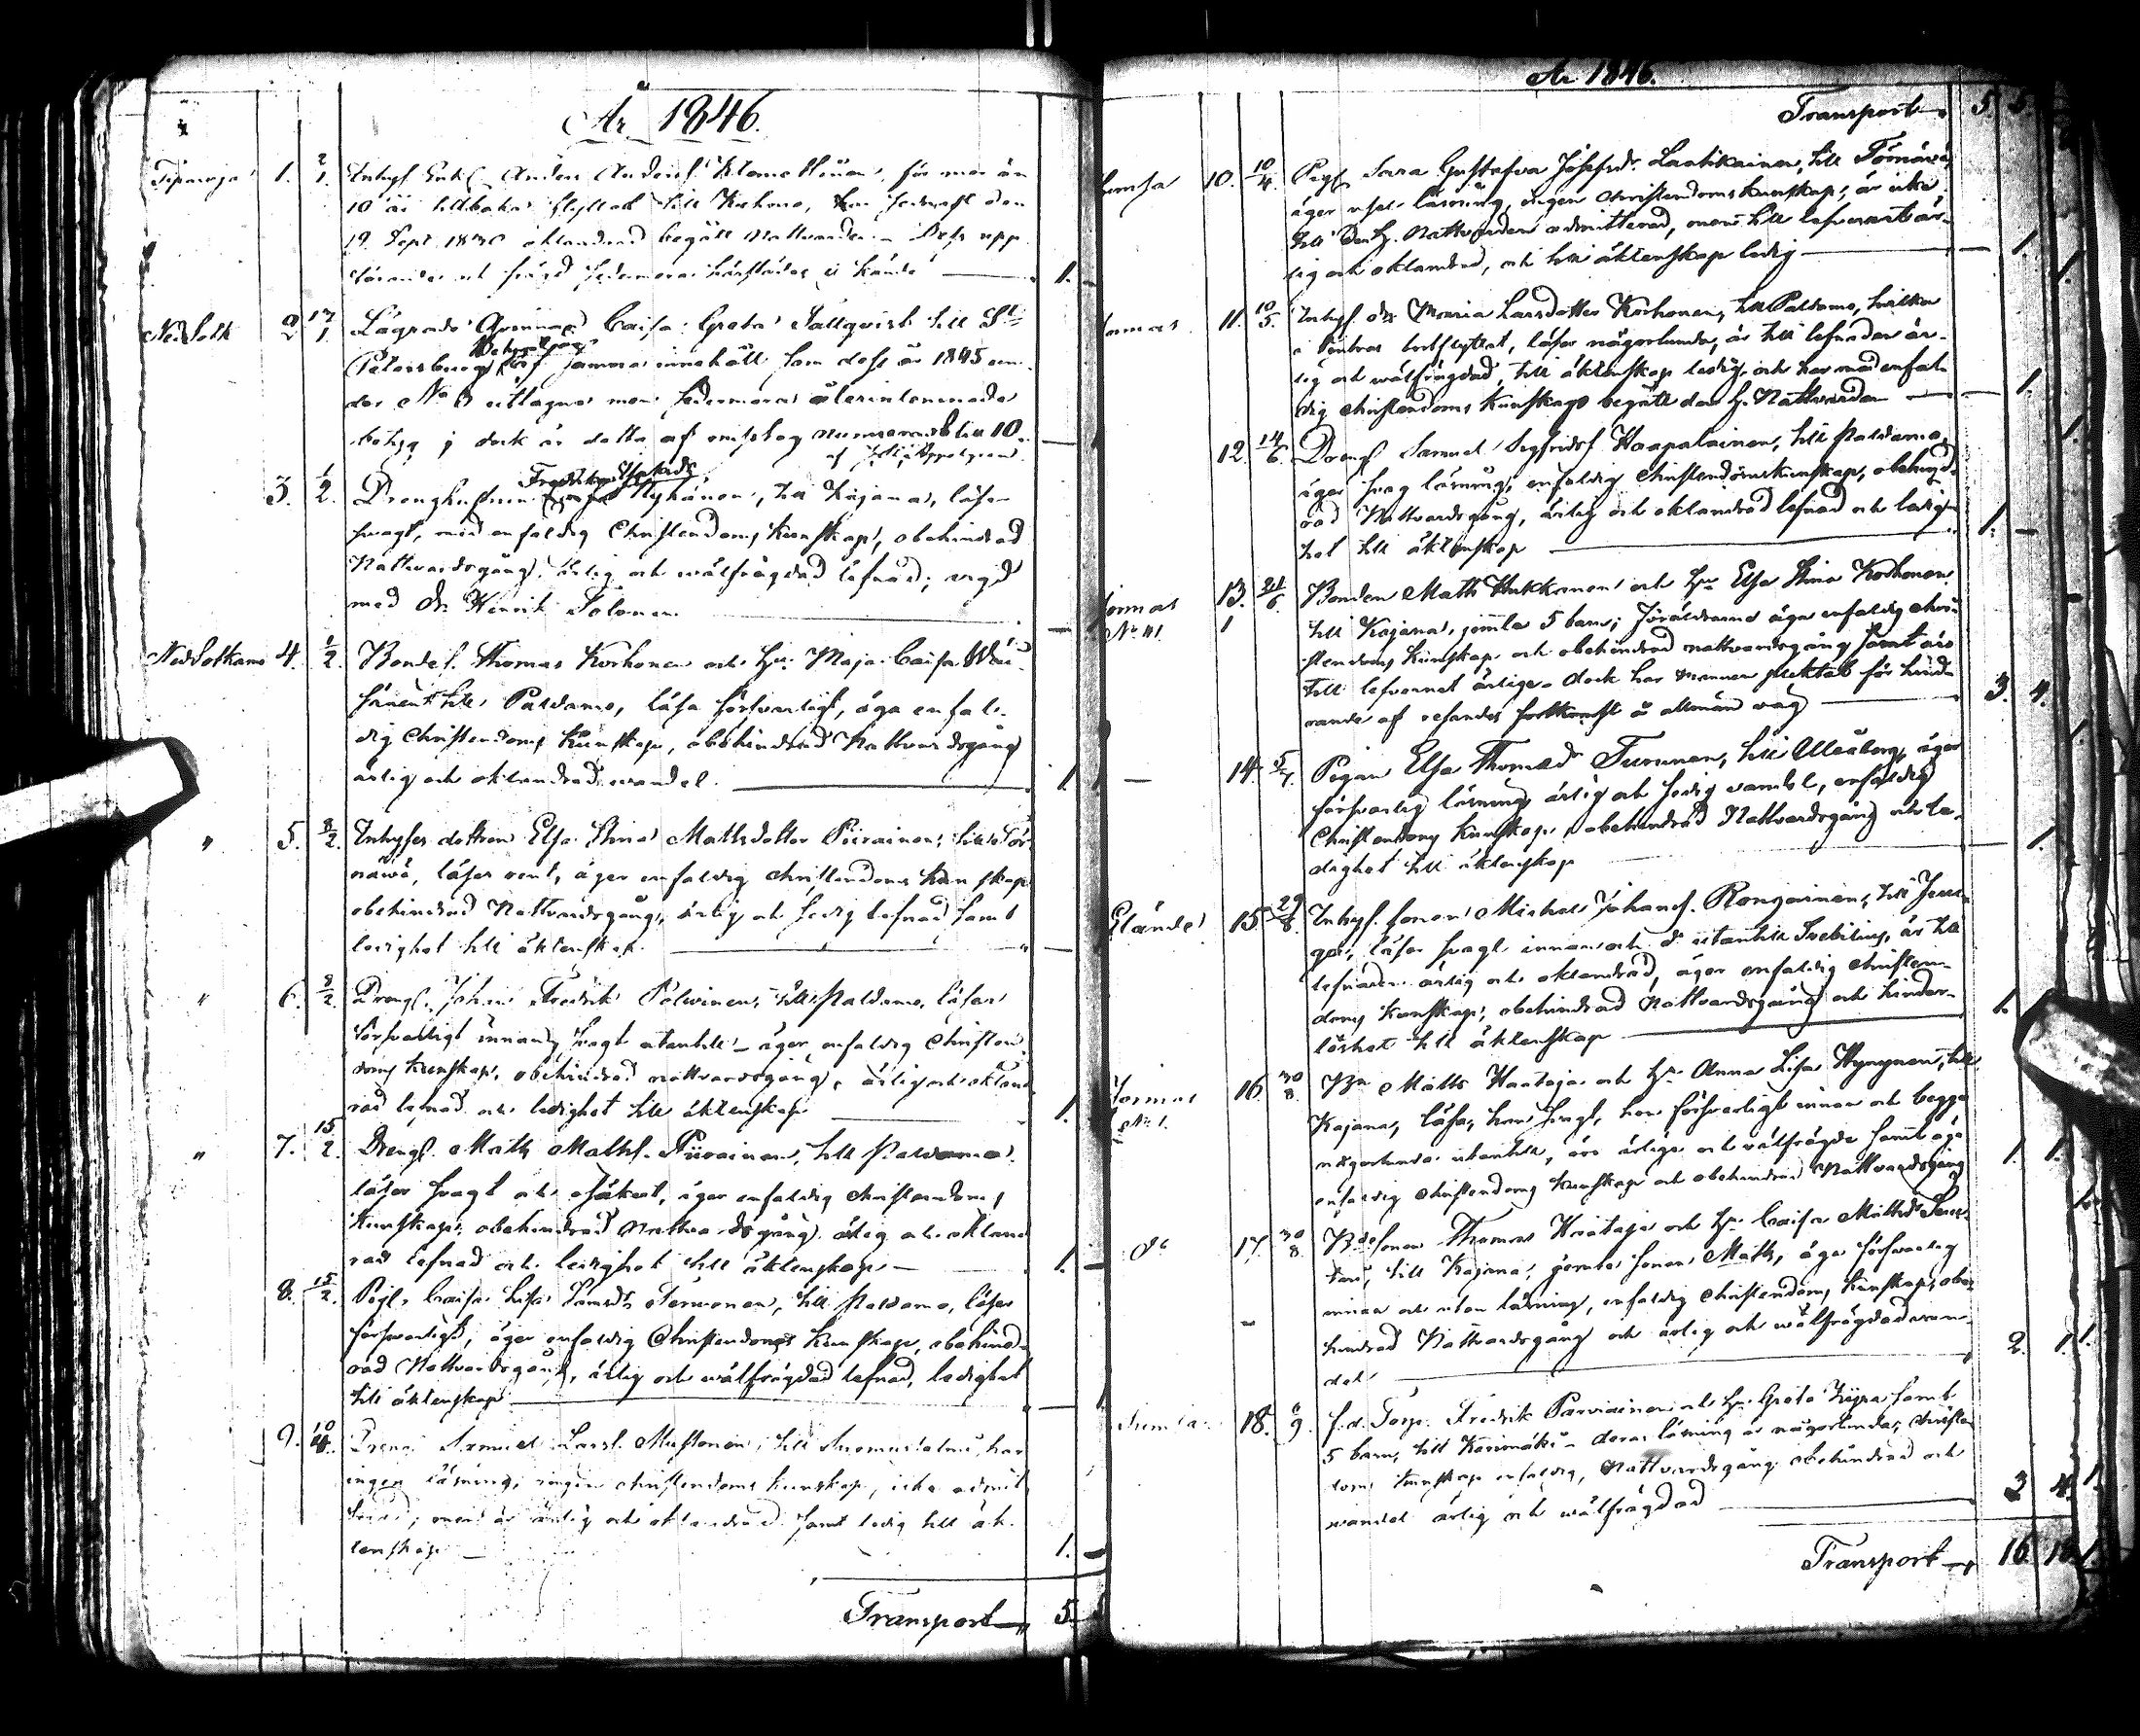 År 1846.
1. 2/1. Inhys Enk. Anders Anderss. Klemettinen, för mer än
10 år tillbaka flyttad till Kuhmo, har sednast den
19 Sept. 18 oklandrad begått Nattvarden. Dess upp
förande och frägd sedermera härstädes ej kände 1.
Ned Sotk 2 17/1. Caisa Greta Sallqvist till St
Petersburg samma innehåll som dess år 1845 un
der No utlagne men sedermera återinlemnade
betyg; dock är detta af nummern blic 10.
3. 1/2. Drenghustrun Nyhänen, till Kajana, läser
svagt, med enfaldig Christendoms kunskap, obehindrad
Nattvardsgång, ärlig och wälfrägdad lefnad; vigd
med Dr. Henrik Solonen.
Ned Sotkamo 4. 1/2. Bondes. Thomas Korhonen och Hu. Maja Caisa
till Paldamo, läsa försvarligt, äga enfal-
dig Christendoms kunskap, obehindrad Nattvardsgång
ärlig och oklandrad wandel. 1
" 5. 8/2. Inhyses dottren Elsa Stina Mattsdotter Piirainen, till Tör
näwä, läser rent, äger enfaldig christendoms kunskap
obehindrad Nattvardsgång, ärlig och sedig lefnad samt
ledighet till äktenskap.
" 6. 8/2. Drengs. Johan Fredrik Polvinen, till Paldamo, läser
försvarligt innan, svagt utantill – äger enfaldig Christen
doms kunskap, obehindrad nattvardsgång, ärlig och oklan
rad lefnad och ledighet till äktenskap 1.
" 7. 15/2. Drengs. Matts Matts. Piirainen, till Paldamo,
läser svagt och osäkert, äger enfaldig christendoms
kunskap, obehindrad nattvardsgång, ärlig och okland
rad lefnad och ledighet till äktenskap – 1.
8. 15/2. Pig. Caisa Lisa Terwonen, till Paldamo, läser
försvarligt, äger enfaldig Christendoms kunskap, obehind-
rad Nattvardsgång, ärlig och wälfrägdad lefnad, ledighet
till äktenskap
9. 10/4. Dreng. Samuel Larss. Mustonen, till Suomussalmi, har
ingen läsning, ringa christendoms kunskap, icke admit
terad; men är ärlig och oklandrad samt ledig till äk-
tenskap 1.
Transport 5.
År 1846.
Transport 5. 5.
10. 10/4. Pig. Sara Gustafva Josephsdr. Laatikainen, till Törnäwä,
äger usel läsning, ringa christendoms kunskap, är icke
till den H. Nattvarden admitterad, men till lefvernet är-
lig och oklandrad, och till äktenskap ledig 1.
11. 10/5. Inhys. dr. Maria Larsdotter Korhonen, till Paldamo, hvilken
i bortflyttat, läser någorlunda, är till lefnaden är-
lig och wälfrägdad, till äktenskap ledig, och har med enfal-
dig christendoms kunskap begått den H. Nattvarden 1.
12. 14/6. Drengs. Samuel Sigfridss. Haapalainen, till Paldamo,
äger svag läsning, enfaldig Christendomskunskap, obehind-
rad Nattvardsgång, ärlig och oklandrad lefnad och ledig-
het till äktenskap 1. –
Jormas No 41. 13. 21/6. Bonden Matts Hukkonen och Hu. Elsa Stina Korhonen
till Kajana, jemte 5 barn; föräldrarne äga enfaldig chri-
stendoms kunskap och obehindrad nattvardsgång samt äro
till lefvernet ärlige – dock har mannen pliktat för hind-
rande af resandes fortkomst å allmän väg 3. 4.
– 14. 5/7. Pigan Elsa Thomasdr. Turunen, till Uleåborg, äger
försvarlig läsning, ärlig och sedig vandel, enfaldig
Christendoms kunskap, obehindrad Nattvardsgång och le-
dighet till äktenskap 1.
15. 29/8. Inhys. sonen Michel Johans. Ronkainen, till
läser svagt innan och do utantill är till
lefnaden ärlig och oklandrad, äger enfaldig christen-
doms kunskap, obehindrad Nattvardsgång och hinder-
löshet till äktenskap 1.
Jormas No 1. 16 30/8. Bn Matts Haataja och Hu. Anna Lisa Hynynen, till
Kajana, läsa, han svagt, hon försvarligt innan och begge
någorlunda utantill, äro ärlige och wälfrägde samt äga
enfaldig christendoms kunskap och obehindrad Nattvardsgång 1. 1.
do 17. 30/8. Bdesonen Thomas Haataja och Hu. Caisa Mattsdr
till Kajana, jemte sonen Matts, äga försvarlig
innan och utan läsning, enfaldig christendoms kunskap, obe-
hindrad Nattvardsgång och ärlig och wälfrägdad wan-
del 2. 1.
18. 6/9. f.d. Torp. Fredrik Parviainen och Hu. Greta samt
5 barn, till Karsmäki – deras läsning är någorlunda, christen
doms kunskap enfaldig, Nattvardsgång obehindrad och
wandel ärlig och wälfrägdad 3 4.
Transport 16.